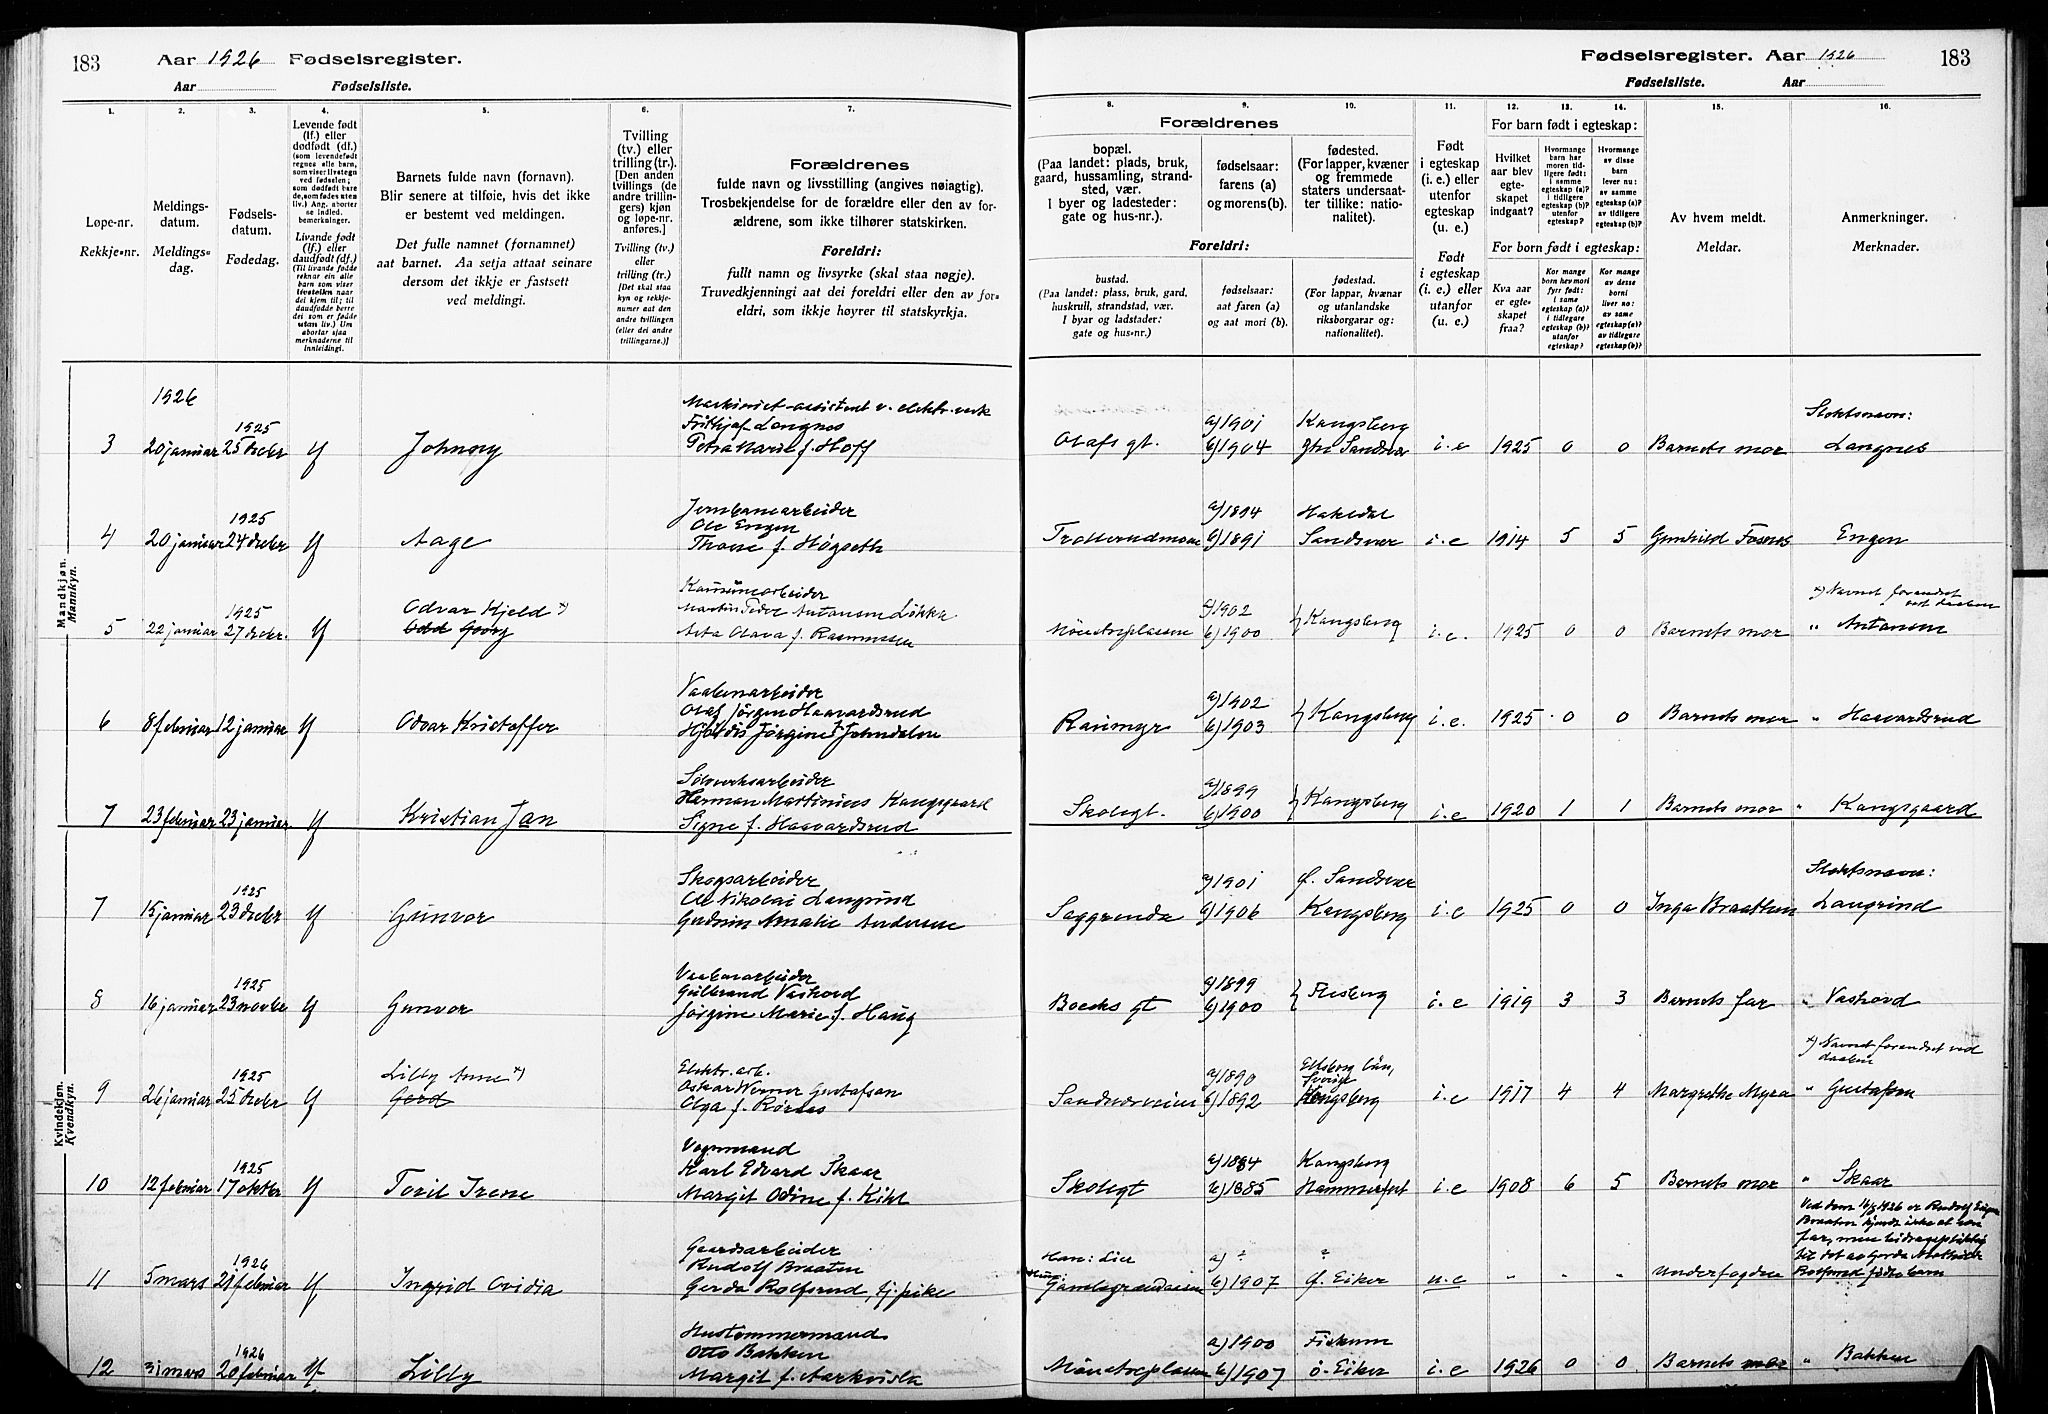 183 Aar 1926 Fødselsregister.
Aar Fødselsliste.
Fødselsregister. Aar 1926 183
Fødselsliste. Aar
1. 2. 3. 4. 5. 6. 7.
Løpe-nr.
Rekkje-nr.
Meldings-
datum.
Meldings-
dag.
Fødsels-
datum.
Fødedag.
Levende født
(lf.) eller
dødfødt (df.)
(som levendefødt
regnes alle barn,
som viser livstegn
ved fødselen;
som dødfødt bare
de, som fødes uten
liv.) Ang. aborter
se indled.
bemerkninger.
Livande fødd
(lf.) eller
daudfødt (df.)
(Til livande fødde
reknar ein alle
barn som viser
livsteikn naar
dei kjem til; til
daudfødde berre
dei som er fødde
utan liv.) Um
abortar sjaa
merknaderne til
innleidingi.
Barnets fulde navn (fornavn).
Blir senere at tilføie, hvis det ikke
er bestemt ved meldingen.
Det fulle namnet (fornamnet)
aat barnet. Aa setja attaat seinare
dersom det ikkje er fastsett
ved meldingi.
Tvilling
(tv.) eller
trilling (tr.).
[Den anden
tvillings (de
andre trillin-
gers) kjøn
og løpe-nr.
anføres.]
Tvilling (tv.)
eller
trilling (tr.)
[Det skal staa
kyn og rekkje-
numer aat den
andre tvillingen
(eller dei andre
trillingarne.)]
Forældrenes
fulde navn og livsstilling (angives nøiagtig).
Trosbekjendelse for de forældre eller den av for-
ældrene, som ikke tilhører statskirken.
Foreldri:
fullt namn og livsyrke (skal staa nøgje).
Truvedkjenningi aat dei foreldri eller den av for-
eldri, som ikkje høyrer til statskyrkja.
8. 9. 10. 11. 12. 13. 14. 15. 16.
Forældrenes
bopæl.
(Paa landet: plads, bruk,
gaard, hussamling, strand-
sted, vær.
I byer og ladesteder:
gate og hus-nr.).
fødselsaar:
farens (a)
og morens (b).
fødested.
(For lapper, kvæner
og fremmede
staters undersaat-
ter tillike: natio-
nalitet).
Foreldri:
bustad.
(Paa landet: plass, bruk, gard,
huskrull, strandstad, vær.
I byar og ladstader:
gate og hus-nr.)
fødselsaar:
aat faren (a)
og aat mori (b).
fødestad.
(For lappar, kvænar
og utanlandske
riksborgarar og:
nationalitet).
Født
i egteskap
(i. e.) eller
utenfor
egteskap
(u. e.)
Født
i egteskap
(i. e.) eller
utanfor
(u. e.)
For barn født i egteskap:
Hvilket
aar blev
egte-
skapet
indgaat?
Hvormange
barn har
moren tid-
ligere født:
i samme
egteskap (a)?
i tidligere
egteskap (b)?
utenfor
egteskap?
Hvormange
av disse
barn
lever nu:
av samme
egteskap (a)?
av tidligere
egteskap (b)?
For born født i egteskap:
Kva aar
er egte-
skapet
fraa?
Kor mange
born hev mori
fyrr født:
i same
egteskap (a)?
i tidlegare
egteskap (b)?
utanfor
egteskap?
Kor mange
av desse
borni
liver no:
av same
egteskap (a)?
av tidlegare
egteskap (b)?
Av hvem meldt.
Meldar.
Anmerkninger.
Merknader.
Mandkjøn.
Mannkyn.
1926
3 20 januar 1925 25 decbr lf Johnny
Frithjof Langnes
Petra Marie f. Hoff
Olafs gt. a) 1901 b) 1904 Kongsberg Sandsvær i.e 1925 0 0 Barnets mor Slektsnavn: Langnes
4 20 januar 1925 24 decbr lf Aage
Jernbanearbeider
Ole Engen
f. Høgseth
a) 1894 b) 1891 Hakedal Sandsvær i.e 1914 5 5 Gunhild Engen
5 22 januar 1925 27 decbr. lf Odvar Kjeld x)
Martin Peder Antonsen Løkka
f. Rasmussen
a) 1902 b) 1900 } Kongsberg i.e. 1925 0 0 Barnets mor x) Navnet forandret ved daaben " Antonsen
6 8 februar 12 januar lf Odvar Kristoffer
Vaabenarbeider
Olaf Jørgen Haavardsrud
Hjørdis Jørgine f. Johndalen
Raumyr a) 1902 b) 1903 } Kongsberg i.e. 1925 0 0 Barnets mor " Haavardsrud
7 23 februar 23 januar lf Kristian Jan
Sølvverksarbeider
Herman Martinius Kongsgaard
Signe f. Haavardsrud
Skolegt. a) 1899 b) 1900 } Kongsberg i.e 1920 1 1 Barnets mor " Kongsgaard
Kvindekjøn.
Kvendkyn.
7 15 januar 1925 23 decbr lf Gunvor
Skogsarbeider
Ole Nikolai Langrind
Gudrun Amalie Andersen
Saggrenda a) 1901 b) 1906 Ø. Sandsvær Kongsberg i.e 1925 0 0 Inga Braathen Slektsnavn: Langrind
8 16 januar 1925 23 novbr lf Gunvor
Vaabenarbeider
Gulbrand Vashovd
Jørgine Marie f. Haug
Boecks gt a) 1899 b) 1900 } Flesberg i.e 1919 3 3 Barnets far " Vashovd
9 26 januar 1925 25 decbr lf Lilly Anne x)
Gerd
Elektr. arb.
Oskar Werner Gustafson
Olga f. Rørnes
Sandsværveien a) 1890 b) 1892 Elfsborg län, Sverige Kongsberg i.e 1917 4 4 Margrethe Myra x) Navnet forandret ved daaben " Gustafson
10 12 februar 1925 17 oktbr lf Toril Irene
Vognmand
Karl Edvard Skaar
Margit Odine f. Kihl
Skolegt a) 1884 b) 1885 Kongsberg Hammerfest i.e 1908 6 5 Barnets mor " Skaar
11 5 mars 1926 21 februar lf Ingrid Ovidia
Gaardsarbeider
Rudolf Braaten
Gerda Rolfsrud, tj.pike
Han: Lier
Hun: Gamlegrendaasen a) ? b) 1907 ? Ø. Eiker u.e " " " Underfogden
Ved dom 16/8 1926 er Rudolf
Braaten kjendt ikke at være
far, men bidragspliktig
til det av Gerda
Rolfsrud fødte barn
12 31 mars 1926 20 februar lf Lilly
Hustømmermand
Otto Bakken
Margit f. Aarkvisla
a) 1900 b) 1907 Fiskum ø. Eiker i.e 1926 0 0 Barnets mor " Bakken